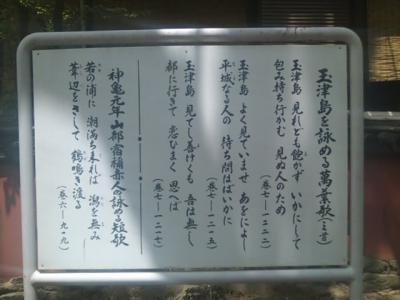 玉津島を詠める萬葉歌(三首)
玉津島 見れども飽かず いかにして
包み持ち行かむ 見ぬ人のため
(巻七―一二二二)
玉津島 よく見ていませ あをによし
平城なる人の 待ち問はばいかに
(巻七―一二一五)
玉津島 見てし善けくも 吾は無し
都に行きて 恋ひまく 思へば
(巻七―一二一七)
神亀元年 山部宿禰赤人の詠める短歌
若の浦に 潮満ち来れば 潟を無み
葦辺をさして 鶴鳴き渡る
(巻六―九一九)